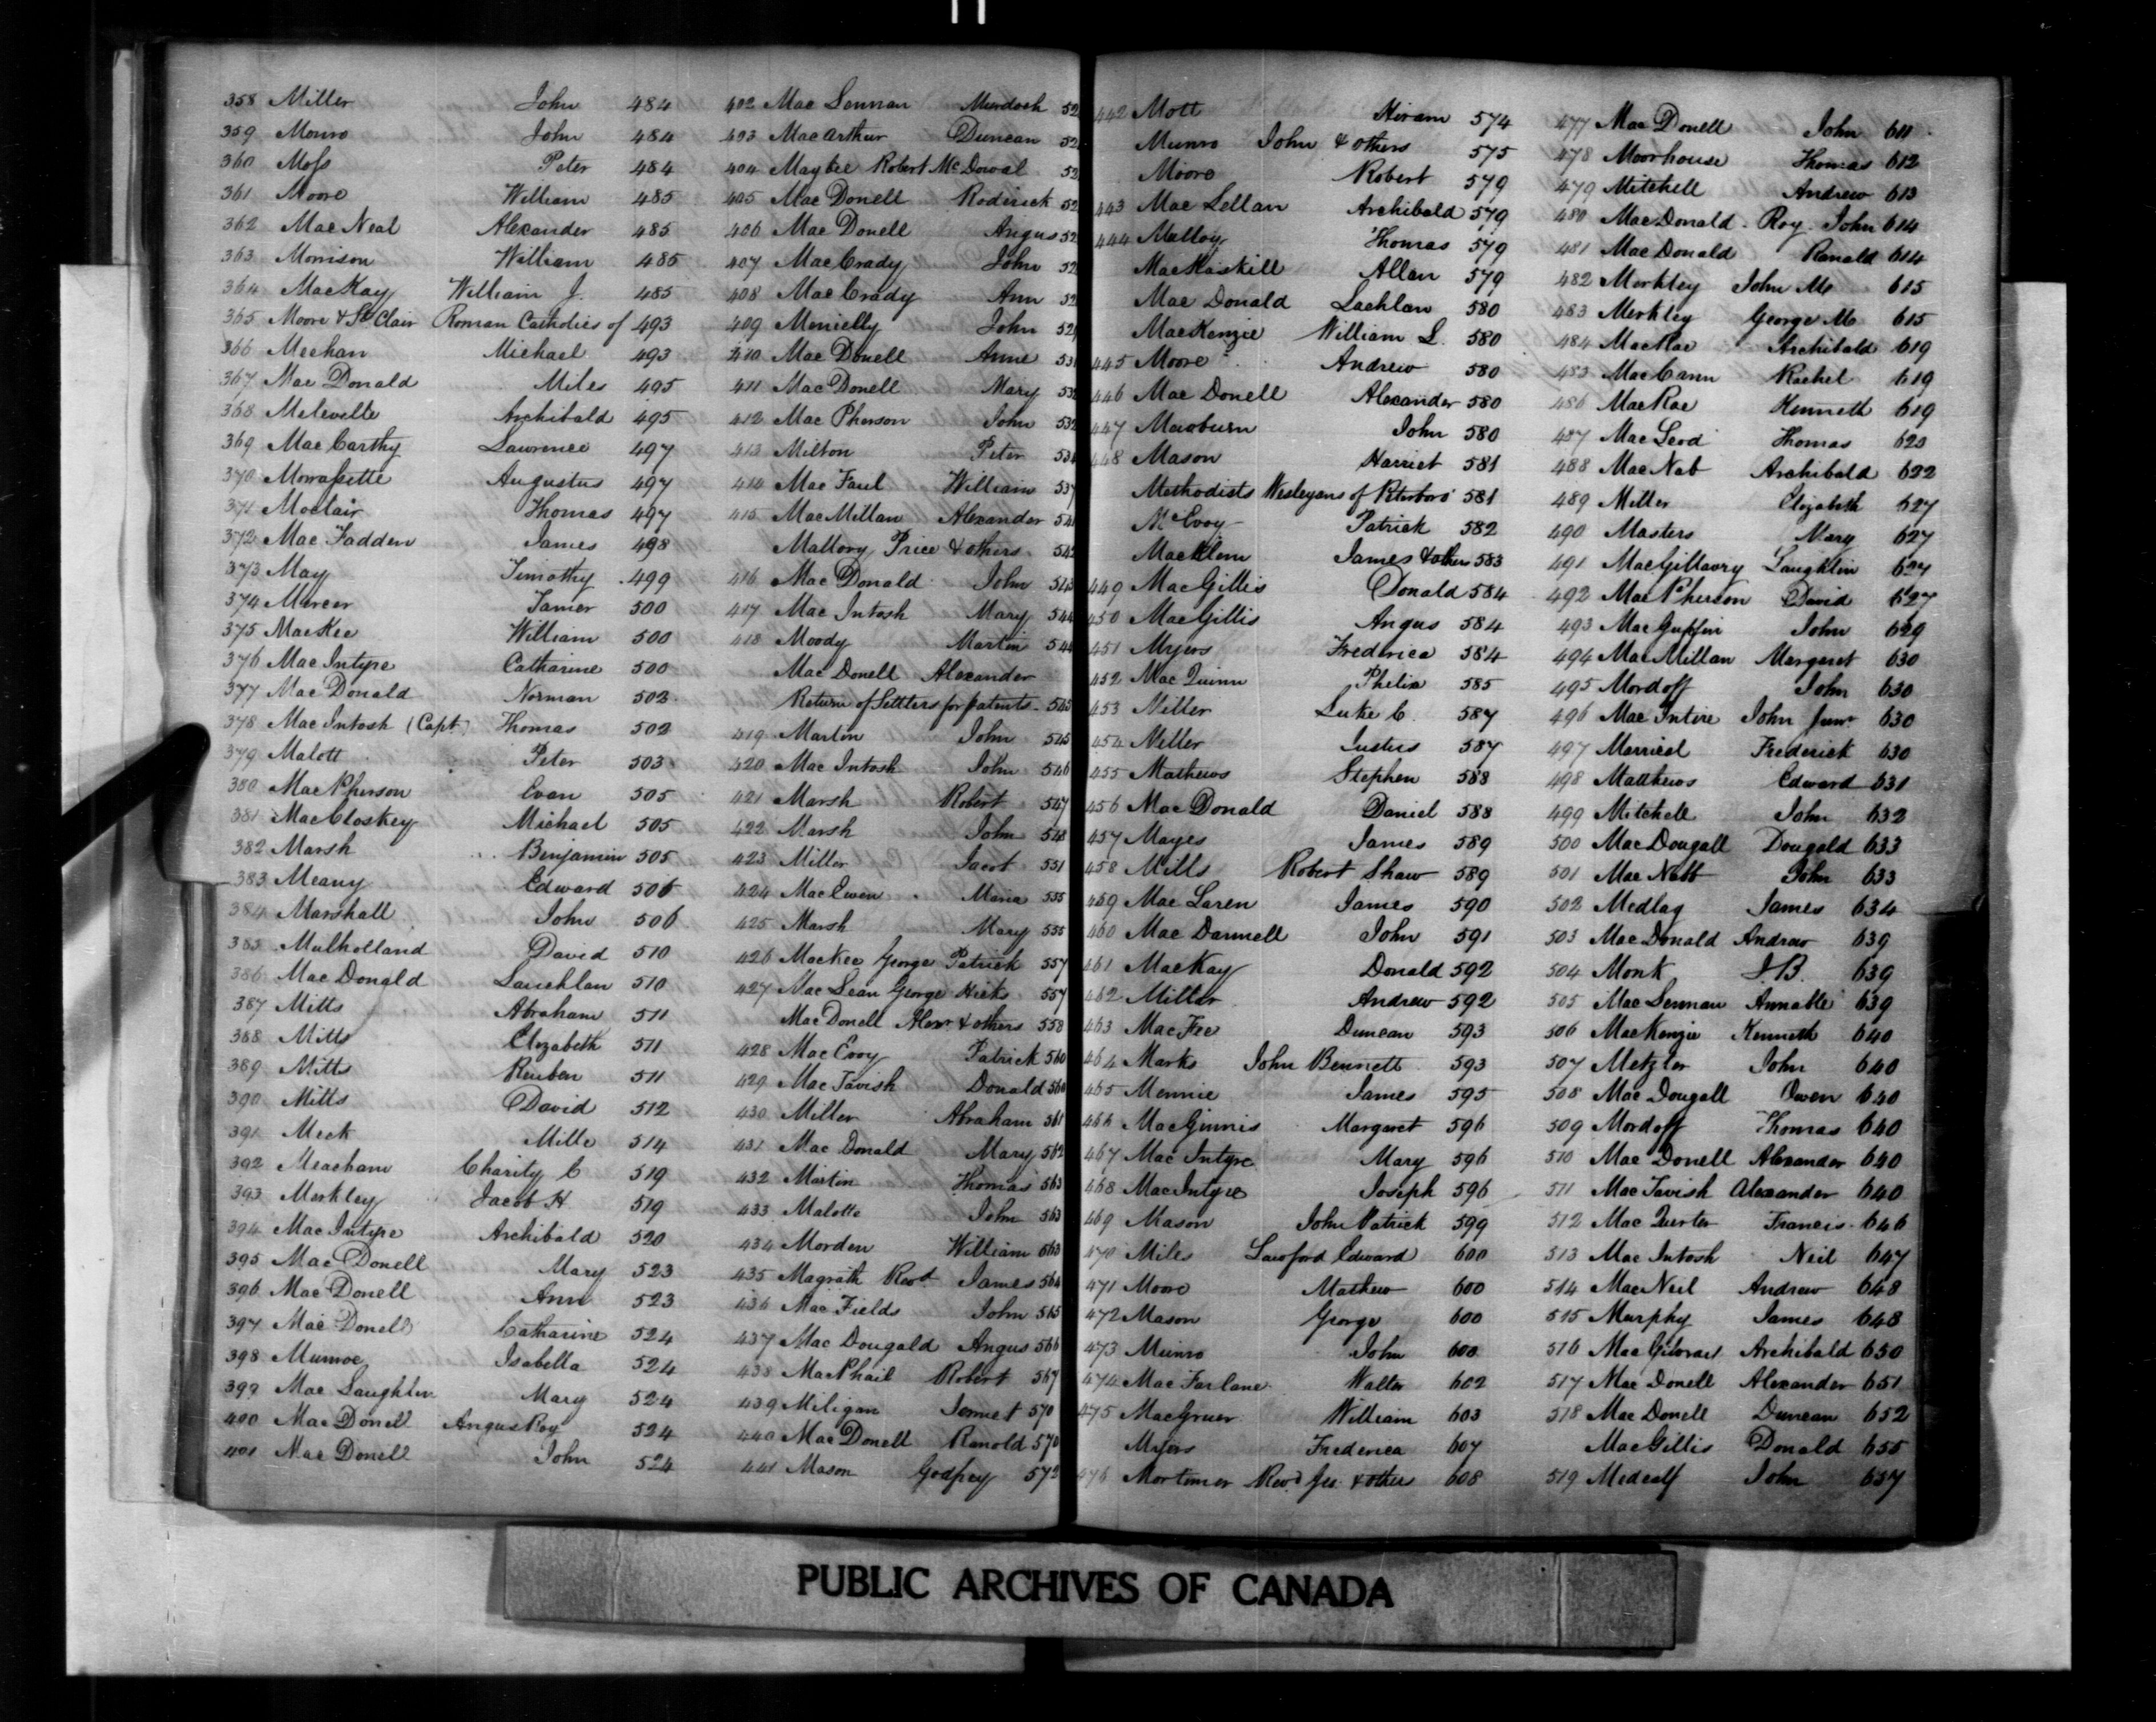 358 Miller John 484
359 Monro John 484
360 Moss Peter 484
361 Moore William 485
362 MacNeal Alexander 485
363 Morrison William 485
364 MacKay William J. 485
365 Moore & St Clair Roman Catholics of 493
366 Meehan Michael 493
367 Mac Donald Miles 495
368 Meleville Archibald 495
369 MacCarthy Lawrence 497
370 Morassette Augustus 497
371 Moclair Thomas 497
372 Mac Fadden James 498
373 May Timothy 499
374 Mercer James 500
375 MacKee William 500
376 Mac Intyre Catharine 500
377 Mac Donald Norman 502
378 Mac Intosh (Capt) Thomas 502
379 Malott Peter 503
380 MacPherson Evan 505
381 MacCloskey Michael 505
382 Marsh Benjamin 505
383 Meany Edward 506
384 Marshall John 506
385 Mulholland David 510
386 Mac Donald Lauchlan 510
387 Mitts Abraham 511
388 Mitts Elizabeth 511
389 Mitts Reuben 511
390 Mitts David 512
391 Meek Mille 514
392 Meacham Charity C 519
393 Merkley Jacob H 519
394 Mac Intyre Archibald 520
395 Mac Donell Mary 523
396 Mac Donell Ann 523
397 Mac Donell Catharine 524
398 Munroe Isabella 524
399 Mac Laughlin Mary 524
400 Mac Donell Angus Roy 524
401 Mac Donell John 524
402 Mac Lennan Murdoch 52
403 MacArthur Duncan 52
404 Maybee Robert McDowal 52
405 Mac Donell Roderick 52
406 Mac Donell Angus 52
407 MacCrady John 52
408 MacCrady Ann 52
409 Menielly John 52
410 Mac Donell Anne 53
411 MacDonell Mary 53
412 Mac Pherson John 532
413 Milton Peter 53
414 Mac Faul William 537
415 MacMillan Alexander 54
Mallory, Price & others 542
416 Mac Donald John 543
417 Mac Intosh Mary 544
418 Moody Martin 544
Mac Donell Alexander
Return of Settlers for patents 545
419 Martin John 545
420 Mac Intosh John 546
421 Marsh Robert 547
422 Marsh John 548
423 Miller Jacob 551
424 MacEwen Maria 555
425 Marsh Mary 555
426 MacKee George Patrick 557
427 Mac Lean George Hicks 557
MacDonell Alexr & others 558
428 MacEvoy Patrick 560
429 Mac Tavish Donald 560
430 Miller Abraham 561
431 Mac Donald Mary 562
432 Martin Thomas 563
433 Malotte John 563
434 Morden William 563
435 Magrath Revd James 564
436 Mac Fields John 565
437 Mac Dougald Angus 566
438 MacPhail Robert 567
439 Miligan Jennet 570
440 MacDonell Ranold 570
441 Mason Godfrey 572
442 Mott Hiram 574
Munro John & others 575
Moore Robert 579
443 Mac Lellan Archibald 579
444 Malloy Thomas 579
MacKaskill Allan 579
Mac Donald Lachlan 580
MacKenzie William L. 580
445 Moore Andrew 580
446 Mac Donell Alexander 580
447 Mawburn John 580
448 Mason Harriet 581
Methodists Wesleyans of Peterboro' 581
McEvoy Patrick 582
Macklem James & others 583
449 MacGillis Donald 584
450 MacGillis Angus 584
451 Myers Frederica 584
452 Mac Quinn Phelix 585
453 Miller Luke C. 587
454 Miller Justus 587
455 Mathews Stephen 588
456 MacDonald Daniel 588
457 Mayes James 589
458 Mills Robert Shaw 589
459 Mac Laren James 590
460 Mac Dannell John 591
461 MacKay Donald 592
462 Miller Andrew 592
463 MacFee Duncan 593
464 Marks John Bennett 593
465 Mennie James 595
466 MacGinnis Margaret 596
467 Mac Intyre Mary 596
468 MacIntyre Joseph 596
469 Mason John Patrick 599
470 Miles Lawford Edward 600
471 Moore Mathew 600
472 Mason George 600
473 Munro John 600
474 Mac Farlane Walter 602
475 MacGruer William 603
Myers Frederica 607
476 Mortimer Revd Geo. & others 608
477 Mac Donell John 611
478 Moorhouse Thomas 612
479 Mitchell Andrew 613
480 MacDonald Roy John 614
481 MacDonald Ranald 614
482 Merkley John Mc 615
483 Merkley George Mc 615
484 MacRae Archibald 619
485 MacCann Rachel 619
486 MacRae Kenneth 619
487 MacLeod Thomas 620
488 MacNab Archibald 622
489 Miller Elizabeth 627
490 Masters Mary 627
491 MacGillavry Laughlin 627
492 MacPherson David 627
493 MacGuffin John 629
494 MacMillan Margaret 630
495 Mordoff John 630
496 Mac Intire John Junr 630
497 Merrical Frederick 630
498 Matthews Edward 631
499 Mitchell John 632
500 MacDougall Dougald 633
501 Mac Nabb John 633
502 Medlag James 634
503 MacDonald Andrew 639
504 Monk J.B. 639
505 MacLennan Annable 639
506 MacKenzie Kenneth 640
507 Metzler John 640
508 MacDougall Owen 640
509 Mordoff Thomas 640
510 Mac Donell Alexander 640
511 MacTavish Alexander 640
512 Mac Quester Francis 646
513 Mac Intosh Neil 647
514 MacNeil Andrew 648
515 Murphy James 648
516 MacGilvray Archibald 650
517 Mac Donell Alexander 651
518 Mac Donell Duncan 652
MacGillis Donald 655
519 Medcalf John 657
PUBLIC ARCHIVES OF CANADA